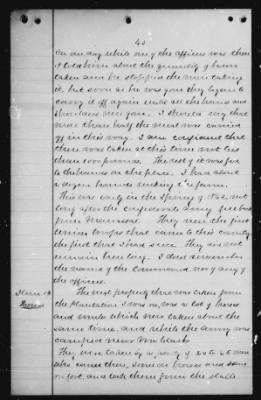 40
On one day while one of the officers was there
I told him about the quantity of bacon
taken and he stopped the men taking
it, but soon as he was gone they began to
carry it off again until all the hams and
shoulders were gone. I should say that
more than half the meat was carried
off in this way. I am confident that
there was taken at this time not less
than 1000 pounds. The rest of it was for
the hands on the place. I had about
a dozen hands
This was early in the Spring of 1862, not
long after the army
from Nashville. They were the first
Union troops that came to this county
the first that I had seen. They did not
remain here long. I dont remember
the name of the command, nor of any of
the officers.
Item
Horses
The next property that was taken from
the plantation I was on, was a lot of horses
and mules which were taken about the
same time, and while the army was
camped near
They were taken by a party of
who came there, some on horses and some
on foot, and took them from the stable